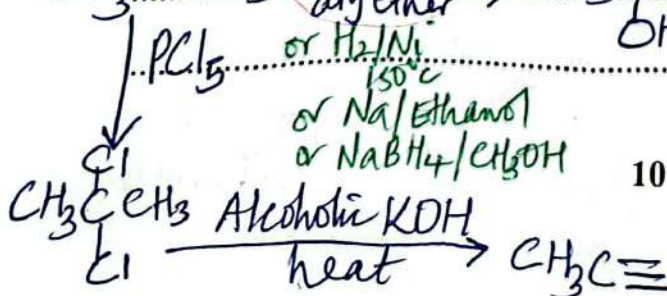 dry ether
OH
PCl5
or H2/Ni
150°C
or Na/Ethanol
or NaBH4/CH3OH
10
Cl
CH3CCH3
Cl
Alcoholic KOH
heat
CH3C≡